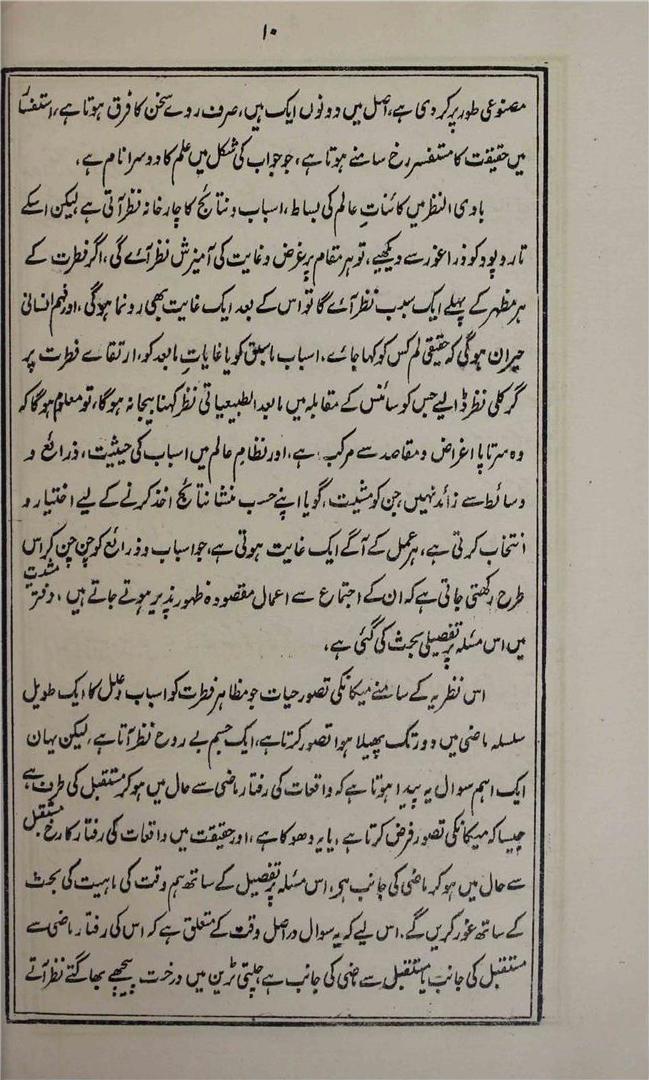 ۱۰
مصنوعی طور پر کر دی ہے، اصل میں دونوں ایک ہیں، صرف روے سخن کا فرق ہوتا ہے، استفسار
میں حقیقت کا مستفسر رخ سامنے ہوتا ہے، جو جواب کی شکل میں علم کا دوسرا نام ہے،
بادی النظر میں کائناتِ عالم کی بساط، اسباب و نتائج کا چارخانہ نظر آتی ہے لیکن اسکے
تار و پود کو ذرا غور سے دیکھیے، تو ہر مقام پر غرض و غایت کی آمیزش نظر آئے گی، اگر فطرت کے
ہر مظہر کے پہلے ایک سبب نظر آئے گا تو اس کے بعد ایک غایت بھی رونما ہوگی، اور فہم انسانی
حیران ہوگی کہ حقیقی لم کس کو کہا جائے، اسباب ماسبق کو یا غایاتِ مابعد کو، ارتقاے فطرت پر
گر کلی نظر ڈالیے جس کو سائنس کے مقابلہ میں مابعد الطبیعیاتی نظر کہنا بیجا نہ ہوگا، تو معلوم ہوگا کہ
وہ سرتاپا اغراض و مقاصد سے مرکب ہے، اور نظامِ عالم میں اسباب کی حیثیت، ذرائع و
وسائط سے زائد نہیں، جن کو مشیت، گویا اپنے حسب منشا نتائج اخذ کرنے کے لیے اختیار و
انتخاب کرتی ہے، ہر عمل کے آگے ایک غایت ہوتی ہے، جو اسباب و ذرائع کو چن چن کر اس
طرح رکھتی جاتی ہے کہ ان کے اجتماع سے اعمال مقصودہ ظہور پذیر ہوتے جاتے ہیں، دفتر مشیت
میں اس مسئلہ پر تفصیلی بحث کی گئی ہے،
اس نظریہ کے سامنے میکانکی تصور حیات جو مظاہر فطرت کو اسباب و علل کا ایک طویل
سلسلہ ماضی میں دور تک پھیلا ہوا تصور کرتا ہے، ایک جسم بے روح نظر آتا ہے، لیکن یہان
ایک اہم سوال یہ پیدا ہوتا ہے کہ واقعات کی رفتار ماضی سے حال میں ہو کر مستقبل کی طرف ہے
جیسا کہ میکانکی تصور فرض کرتا ہے، یا یہ دھوکا ہے، اور حقیقت میں واقعات کی رفتار کا رخ مستقبل
سے حال میں ہو کر ماضی کی جانب ہی، اس مسئلہ پر تفصیل کے ساتھ ہم وقت کی ماہیت کی بحث
کے ساتھ غور کریں گے، اس لیے کہ یہ سوال دراصل وقت کے متعلق ہے کہ اس کی رفتار ماضی سے
مستقبل کی جانب یا مستقبل سے ماضی کی جانب ہے چلتی ٹرین میں درخت پیچھے بھاگتے نظر آتے